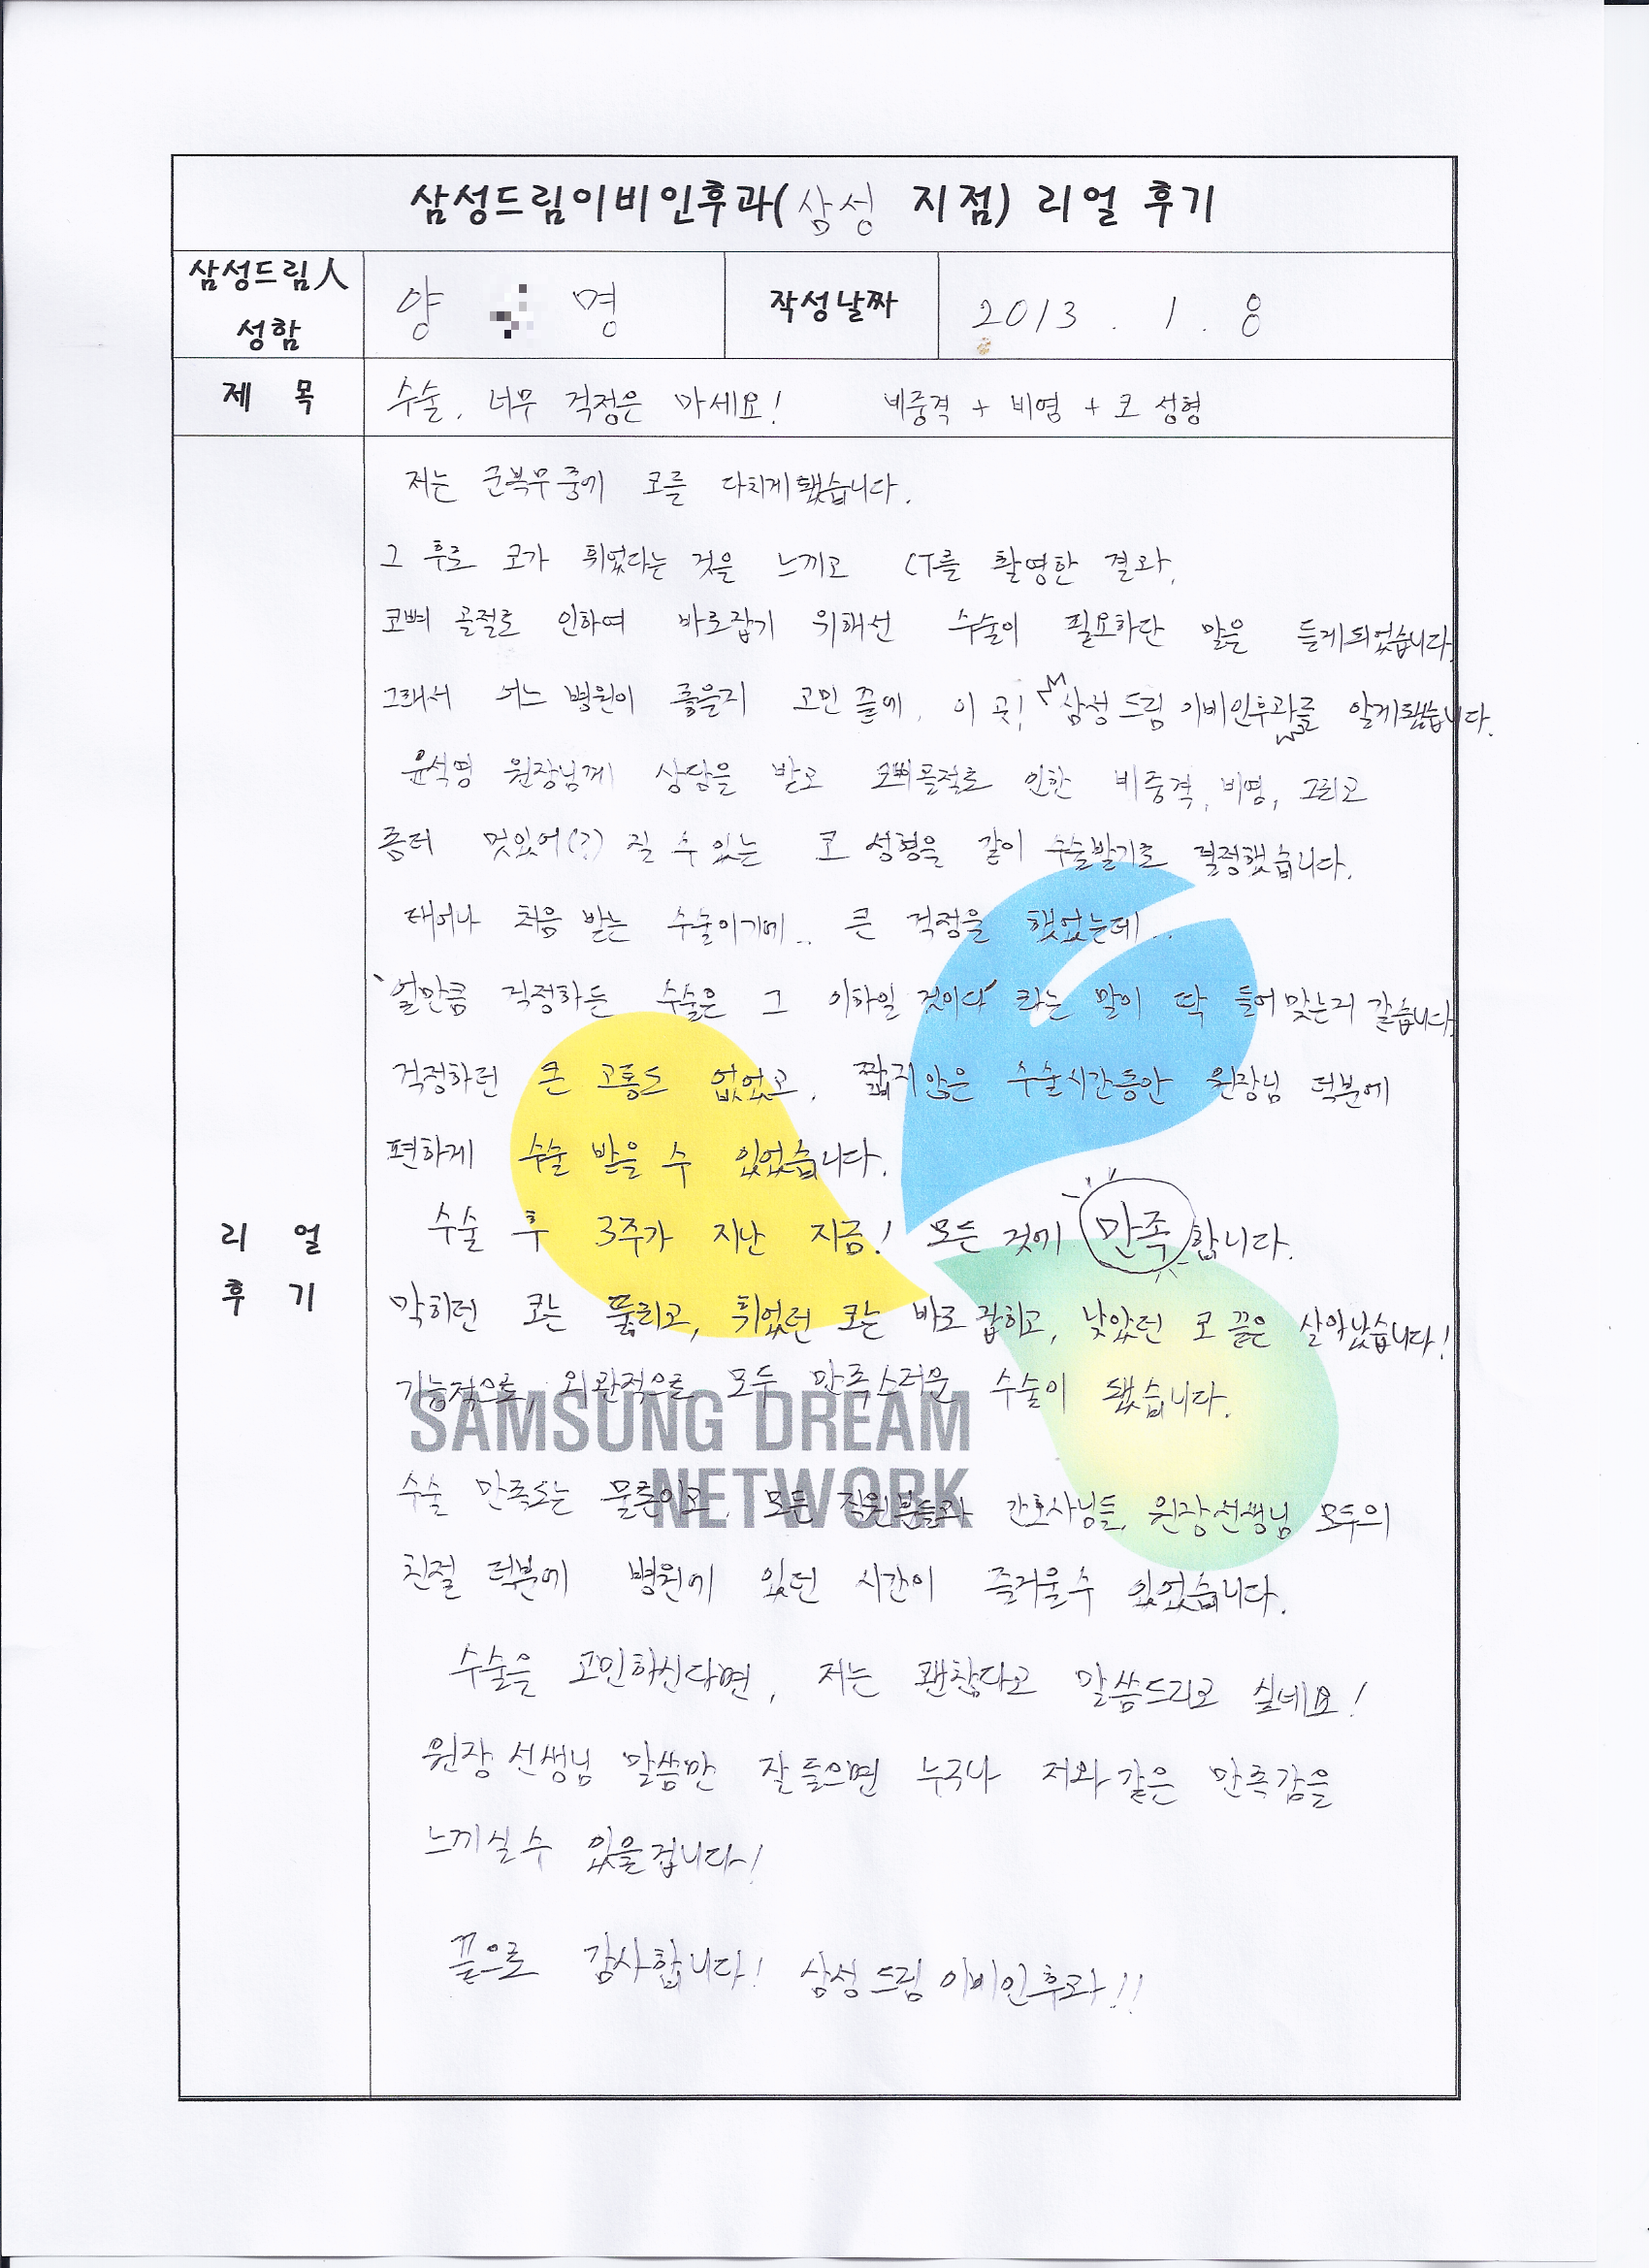 삼성드림이비인후과(삼성 지점) 리얼 후기
삼성드림人 성함
양 명
작성날짜
2013. 1. 8
제 목
수술, 너무 걱정은 마세요! 비중격 + 비염 + 코 성형
리 얼 후 기
저는 군복무중에 코를 다치게됐습니다.
그 후로 코가 휘었다는 것을 느끼고 CT를 촬영한 결과,
코뼈 골절로 인하여 바로잡기 위해선 수술이 필요하단 말을 듣게되었습니다.
그래서 어느 병원이 좋을지 고민 끝에, 이 곳! 삼성드림 이비인후과를 알게됐습니다.
윤석명 원장님께 상담을 받고 코뼈골절로 인한 비중격, 비염, 그리고
좀더 멋있어(?) 질 수 있는 코 성형을 같이 수술받기로 결정했습니다.
태어나 처음 받는 수술이기에.. 큰 걱정을 했었는데..
'얼만큼 걱정하든 수술은 그 이하일 것이다' 라는 말이 딱 들어맞는거 같습니다.
걱정하던 큰 고통도 없었고, 짧지않은 수술시간동안 원장님 덕분에
편하게 수술 받을 수 있었습니다.
수술 후 3주가 지난 지금! 모든 것에 만족합니다.
막히던 코는 뚫리고, 휘었던 코는 바로 잡히고, 낮았던 코 끝은 살아났습니다!
기능적으로, 외관적으로 모두 만족스러운 수술이 됐습니다.
SAMSUNG DREAM
NETWORK
수술 만족도는 물론이고, 모든 직원분들과 간호사님들, 원장선생님 모두의
친절 덕분에 병원에 있던 시간이 즐거울수 있었습니다.
수술을 고민하신다면, 저는 괜찮다고 말씀드리고 싶네요!
원장 선생님 말씀만 잘 들으면 누구나 저와 같은 만족감을
느끼실수 있을겁니다!
끝으로 감사합니다! 삼성드림이비인후과!!